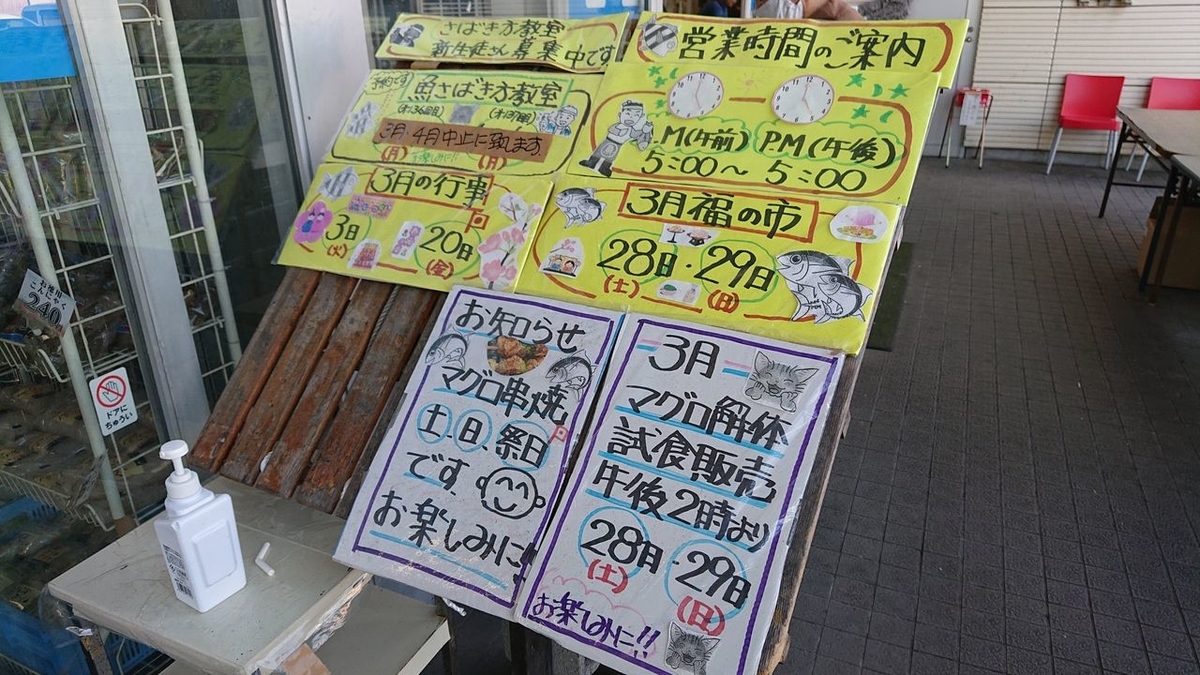 さばき方教室
新生徒さん募集中です
営業時間のご案内
予約です
魚さばき方教室
3月、4月中止に致します。
(月)
(月)
A.M(午前) P.M(午後)
5:00～5:00
3月の行事
3日
(火)
20日
(金)
3月福の市
28日・29日
(土) (日)
お知らせ
マグロ串焼
土、日、祭日
です。
お楽しみに!!
3月
マグロ解体
試食販売
午後2時より
28日・29日
(土) (日)
お楽しみに!!
お徳用
こんにゃく
240
ドアに
ちゅうい